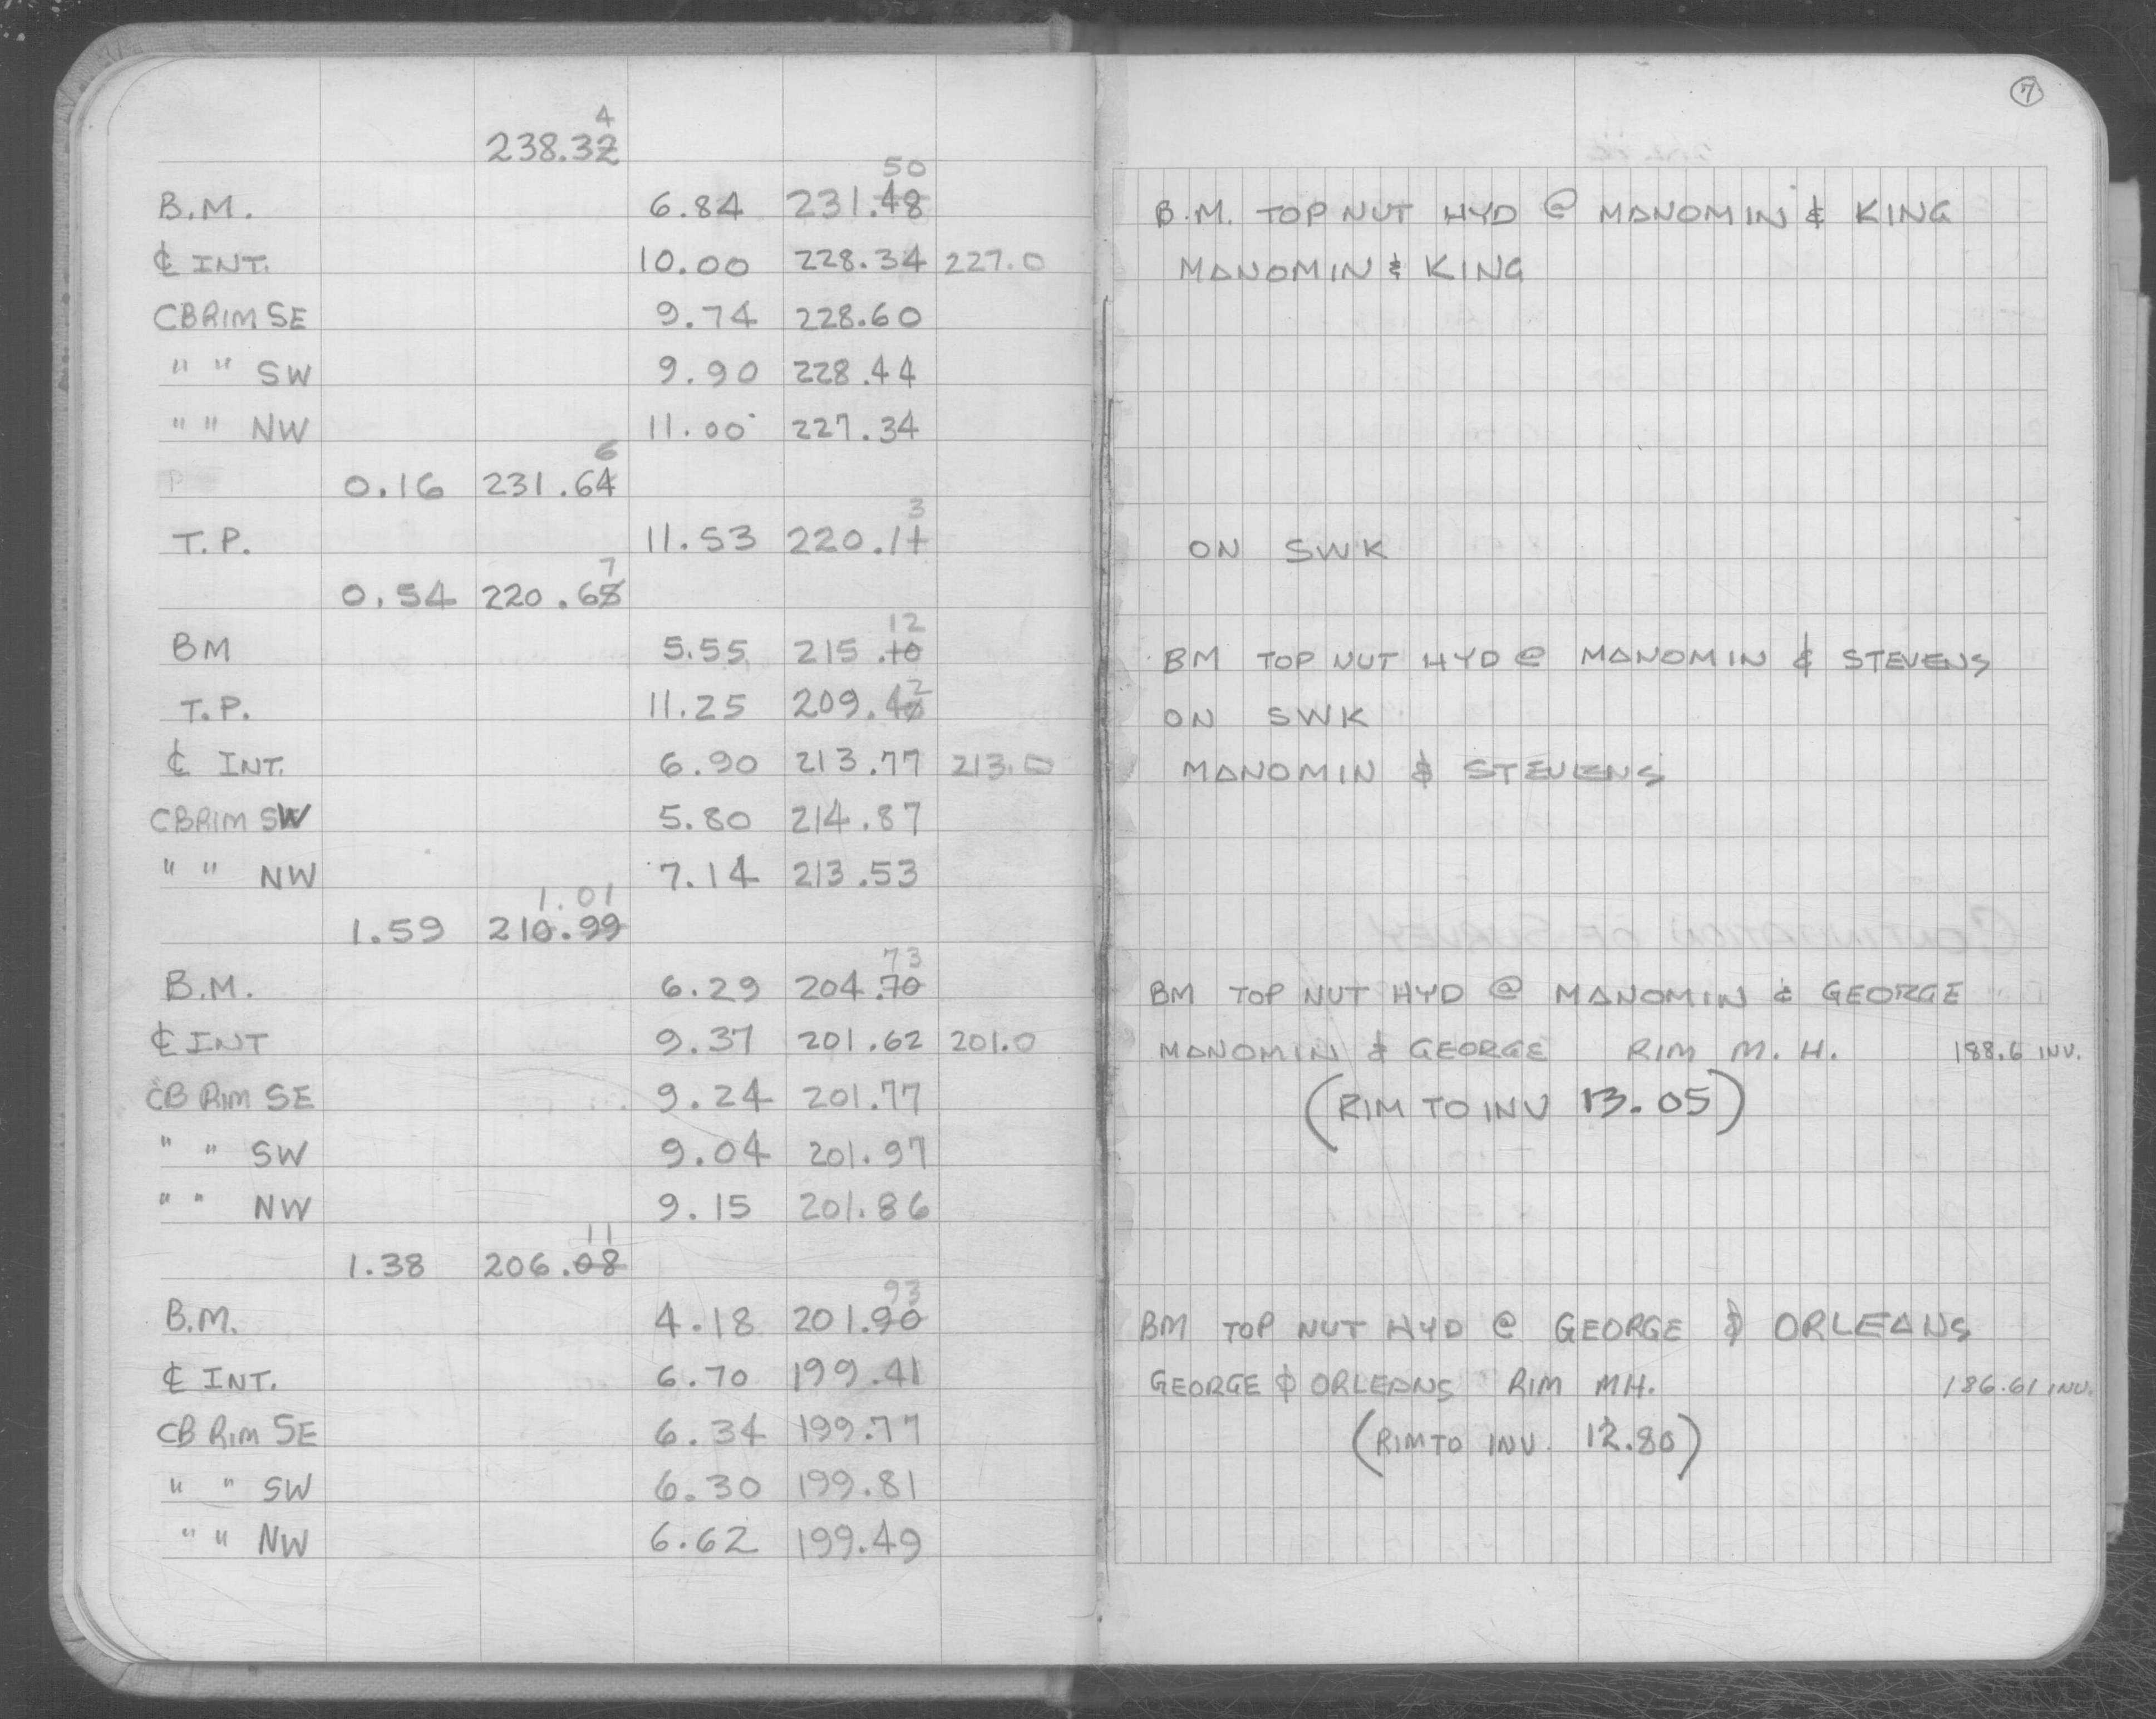 7
4
238.32
50
B.M. 6.84 231.48 B.M. TOP NUT HYD @ MANOMIN & KING
℄ INT. 10.00 228.34 227.0 MANOMIN & KING
CB RIM SE 9.74 228.60
" " SW 9.90 228.44
" " NW 11.00 227.34
6
0.16 231.64
3
T.P. 11.53 220.11 ON SWK
7
0.54 220.65
12
BM 5.55 215.10 BM TOP NUT HYD @ MANOMIN & STEVENS
2
T.P. 11.25 209.40 ON SWK
℄ INT. 6.90 213.77 213.0 MANOMIN & STEVENS
CB RIM SW 5.80 214.87
" " NW 7.14 213.53
1.01
1.59 210.99
73
B.M. 6.29 204.70 BM TOP NUT HYD @ MANOMIN & GEORGE
℄ INT 9.37 201.62 201.0 MANOMIN & GEORGE RIM M.H. 188.6 INV.
CB RIM SE 9.24 201.77 (RIM TO INV 13.05)
" " SW 9.04 201.97
" " NW 9.15 201.86
11
1.38 206.08
93
B.M. 4.18 201.90 BM TOP NUT HYD @ GEORGE & ORLEANS
℄ INT. 6.70 199.41 GEORGE & ORLEANS RIM MH. 186.61 INV.
CB RIM SE 6.34 199.77 (RIM TO INV. 12.80)
" " SW 6.30 199.81
" " NW 6.62 199.49